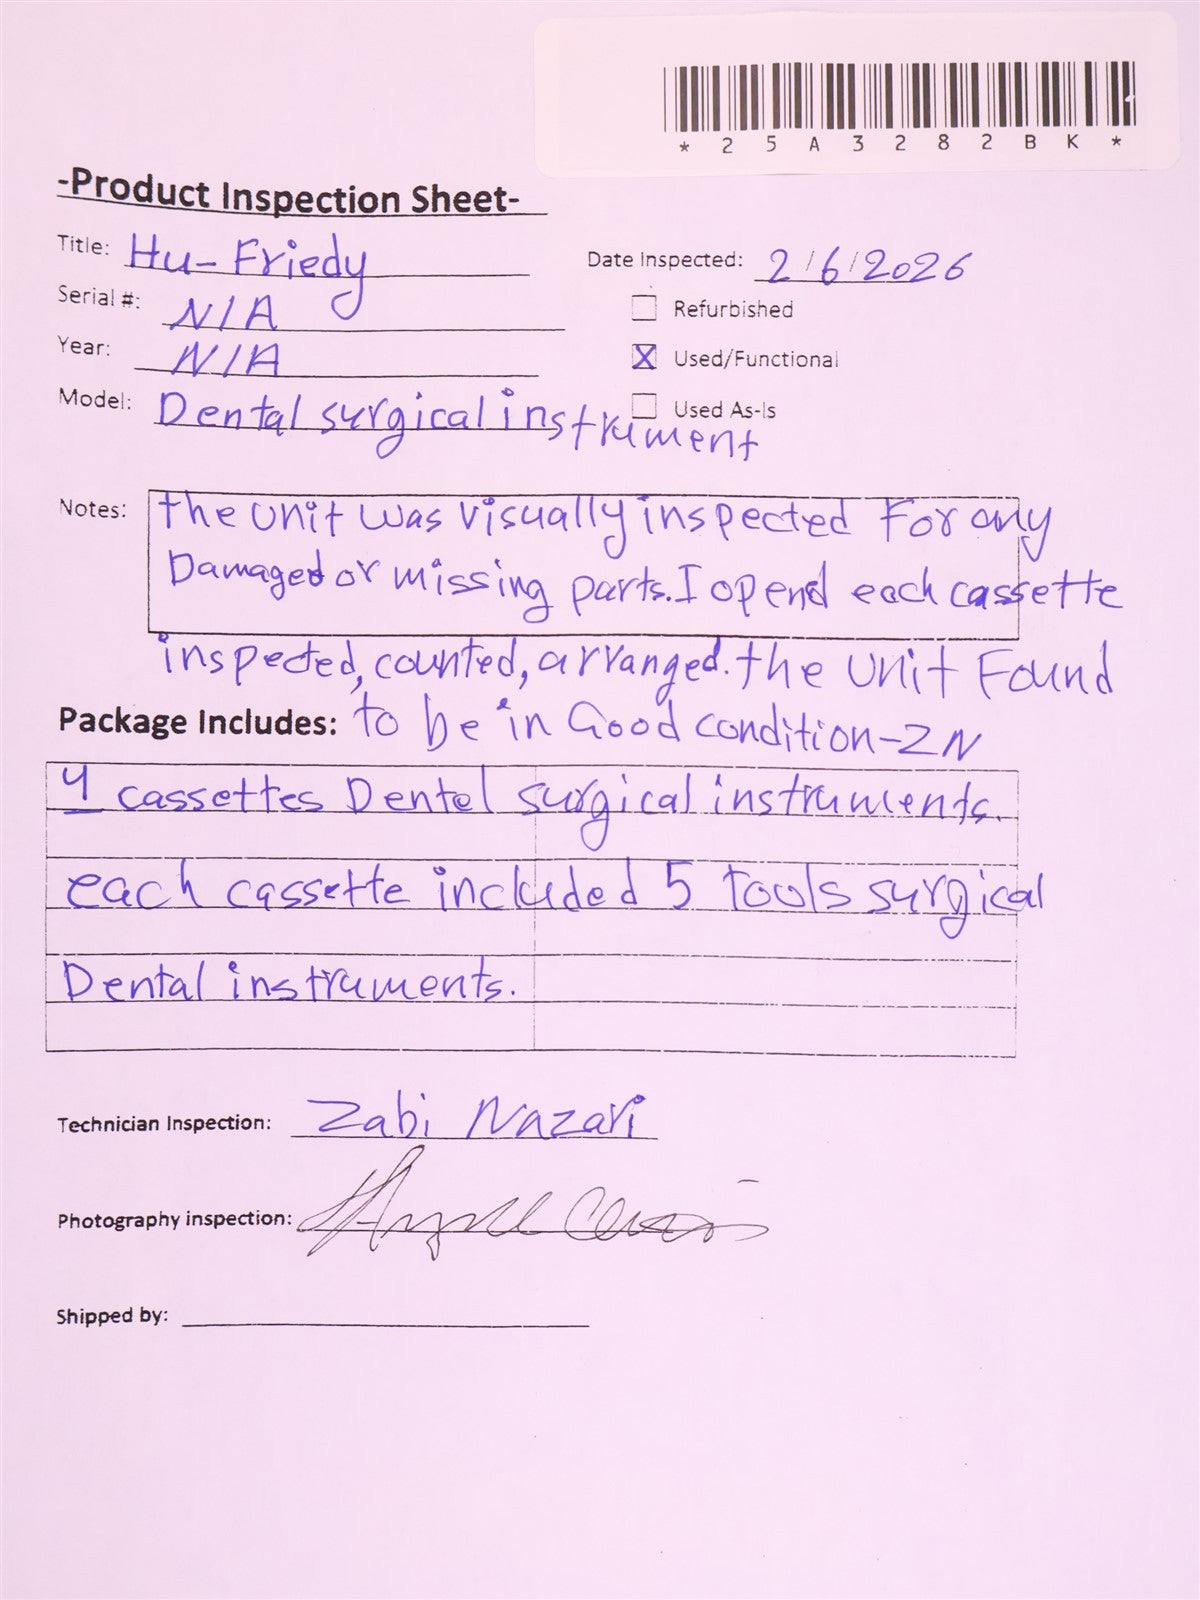 *25A3282BK*
-Product Inspection Sheet-
Title: Hu-Friedy
Date Inspected: 2/6/2026
Serial #: N/A
Refurbished
Year: N/A
X Used/Functional
Model: Dental surgical instrument
Used As-Is
Notes: the unit was visually inspected For any
Damaged or missing parts. I opend each cassette
inspected, counted, arranged. the unit Found
to be in Good condition-ZN
Package Includes:
4 cassettes Dentel surgical instruments.
each cassette included 5 tools surgical
Dental instruments.
Technician Inspection: Zabi Nazari
Photography inspection:
Shipped by: